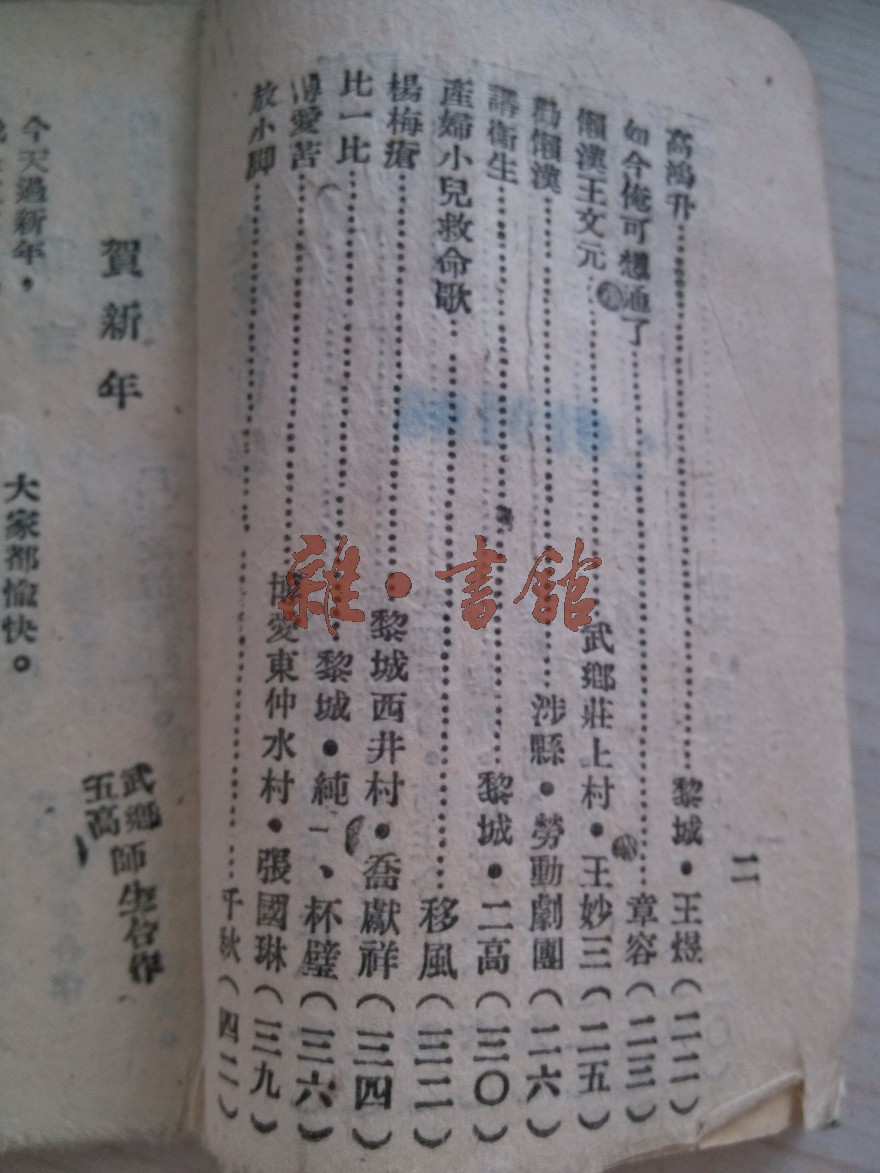 二
高鴻升……黎城・王煜(二二)
如今俺可想通了……章容(二三)
懶漢王文元……武鄉莊上村・王妙三(二五)
勸懶漢……涉縣・勞動劇團(二六)
講衛生……黎城・二高(三〇)
產婦小兒救命歌……移風(三二)
楊梅瘡……黎城西井村・喬獻祥(三四)
比一比……黎城・純一、杯璧(三六)
愛苦……博愛東仲水村・張國琳(三九)
放小脚……千秋(四二)
賀新年
武鄉五高師生合作
今天過新年,
大家都愉快。
雜・書館